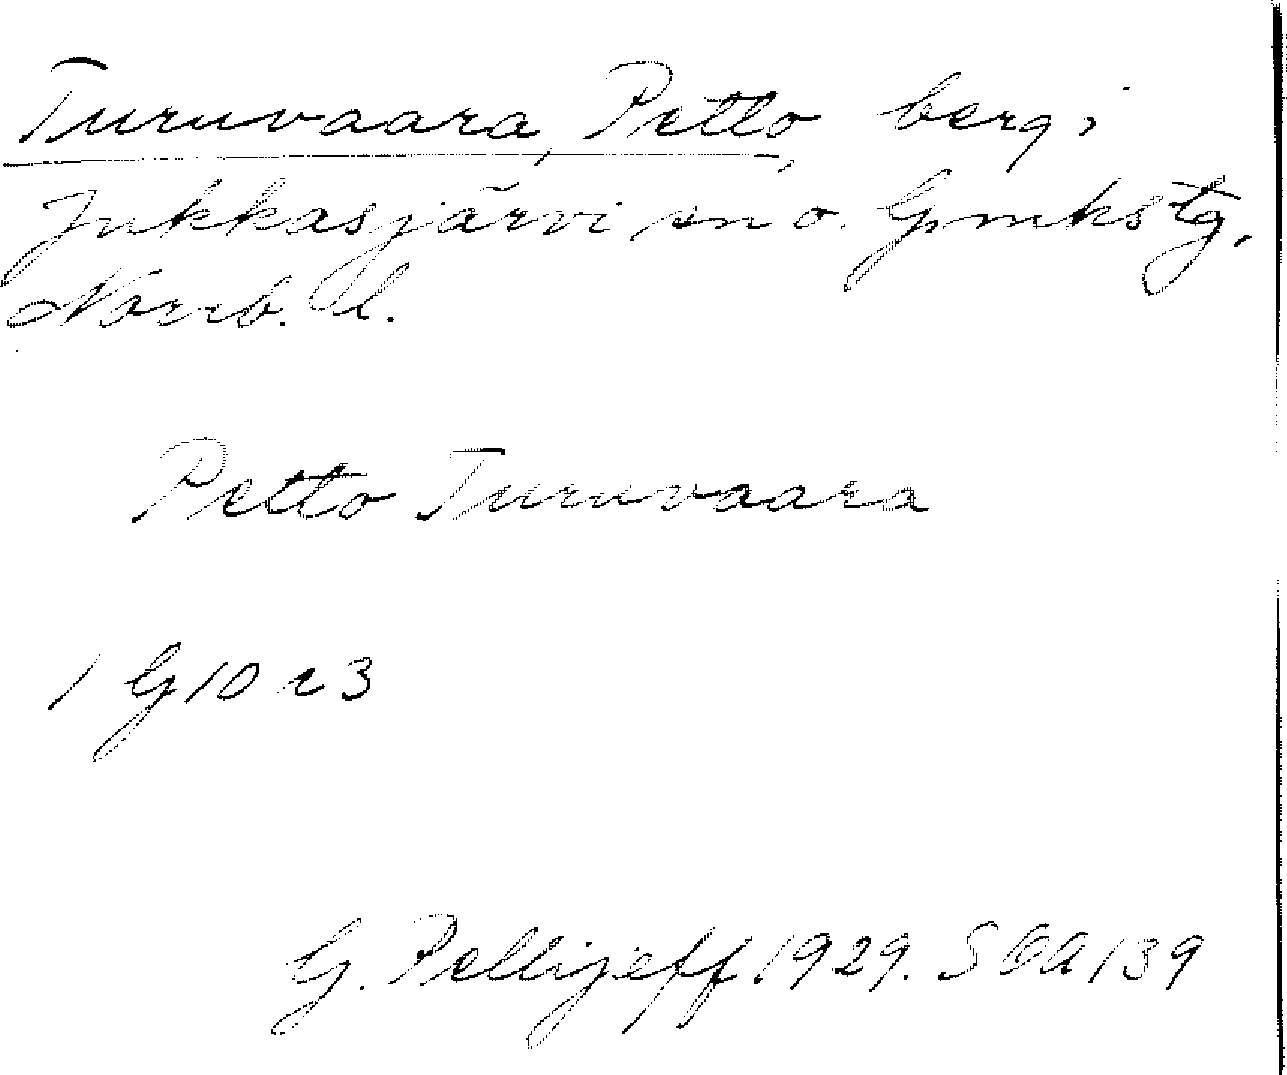 Turuvaara, Petto, berg i
Jukkasjärvi sn o. Gmkstg,
Norrb. l.
Petto Turuvaara
1 G 10 c 3
G. Pellijeff 1929. SOA 139